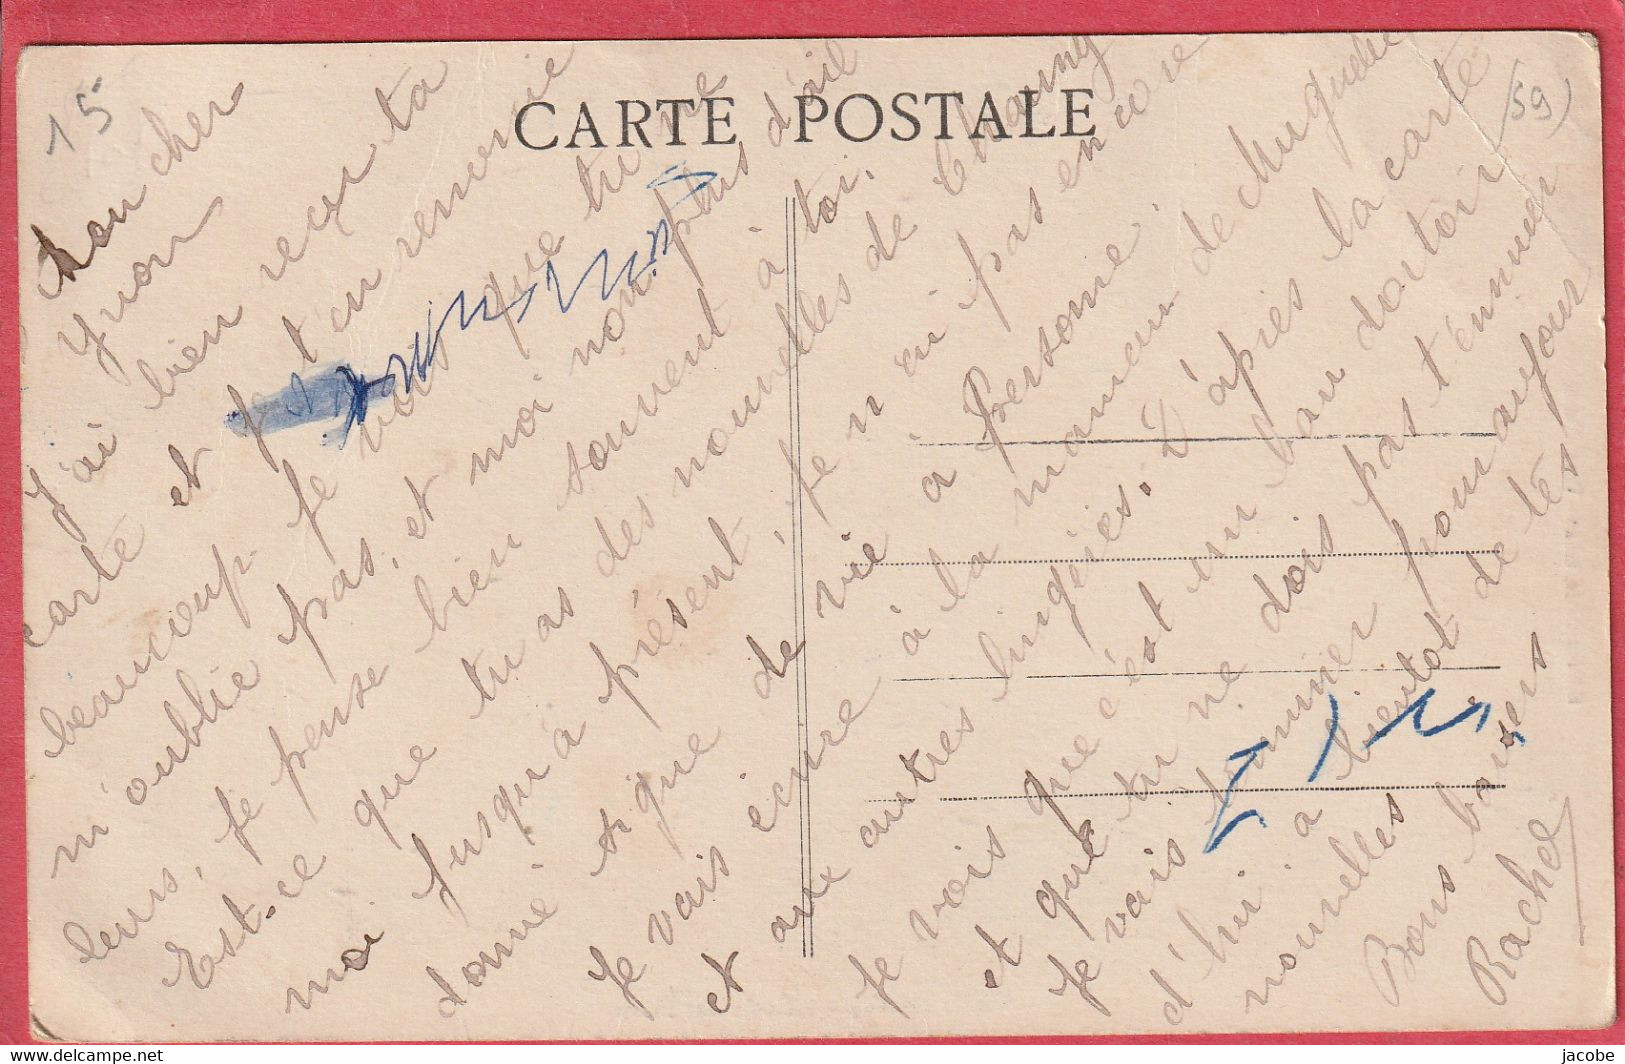 15
CARTE POSTALE
(59)
Mon cher
Yvon
J'ai bien reçu ta
carte et je t'en remercie
beaucoup je vois que tu ne
m'oublie pas, et moi non plus d'ail
leurs, je pense bien souvent à toi.
Est-ce que tu as des nouvelles de
moi jusqu'à présent, je n'ai pas encore
donné signe de vie à personne.
Je vais écrire à la maman de Muguette
et aux autres lingères. D'après la carte
je vois que c'est un bau dortoir
et que tu ne dois pas t'énnuier
Je vais terminer pour aujour
d'hui à bientot de tes
nouvelles
Bons baisers
Rachel
www.delcampe.net
jacobe